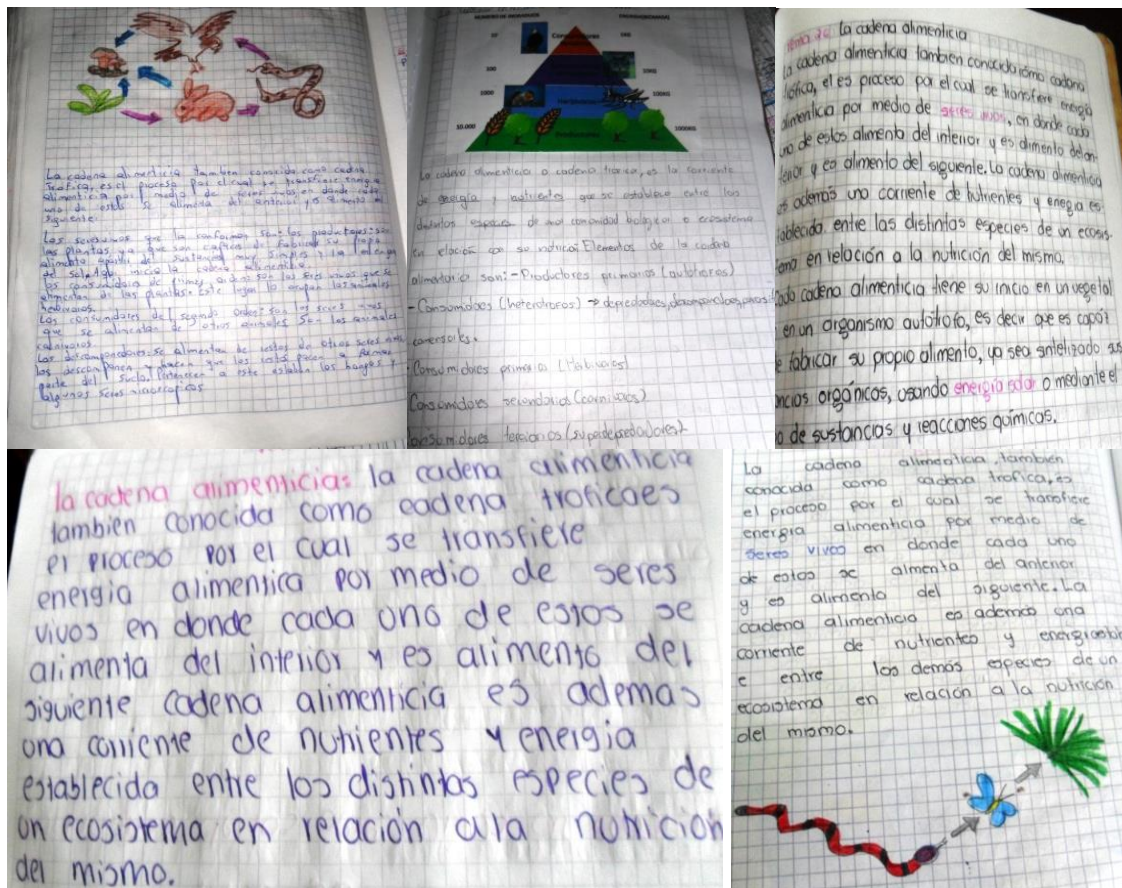 La cadena alimenticia tambien conocida como cadena
Trofica, es el proceso por el cual se transfiere energia
alimenticia por medio de seres vivos en donde cada
uno de estos se alimenta del anterior y es alimento del
siguiente.
Los seres vivos que la conforman son: los productores: son
las plantas ya que son capaces de fabricar su propio
alimento apartir del sustancias muy simples y la energia
del sol, ahi inicia la cadena alimenticia.
los consumidores de primer orden: son los seres vivos que se
alimentan de las plantas. Este lugar lo ocupan los animales
herbivoros.
Los consumidores del segundo orden: son los seres vivos
que se alimentan de otros animales Son los animales
carnivoros.
Los descomponedores: se alimentan de restos de otros seres vivos
los descomponen y hacen que los restos pasen a formar
parte del suelo. Pertenecen a este eslabon los hongos y
algunos seres microscopicos
NUMERO DE INDIVIDUOS
10
100
1000
10.000
1KG
10KG
100KG
1000KG
Herbivoros
Productores
La cadena alimenticia o cadena trofica, es la corriente
de energia y nutrientes que se establece entre las
distintas especies de una comunidad biologica o ecosistema
en elación con su nutrición Elementos de la cadena
alimentaria son: - Productores primarios (autotrofos)
- Consumidoes (heterotrofos) → depredadoes, descomponedoes,
comensales.
- Consumidores primario (Hebivoros)
Consumidores secundarios (carnivoros)
consumidores terciarios (superdepredadores)
Tema 26 La cadena alimenticia
La cadena alimenticia tambien conocida como cadena
trófica, el es proceso por el cual se transfiere energía
alimenticia por medio de seres vivos, en donde cada
uno de estos alimenta del interior y es alimento del an-
terior y es alimento del siguiente. La cadena alimenticia
es además una corriente de nutrientes y energia es-
tablecida entre las distintas especies de un ecosis-
tema en relación a la nutrición del mismo.
Cada cadena alimenticia tiene su inicio en un vegetal
en un organismo autótrofo, es decir que es capaz
de fabricar su propio alimento, ya sea sintetizado sus
ancias orgánicas, usando energía solar o mediante el
o de sustancias y reacciones químicas.
la cadena alimenticia: la cadena alimenticia
tambien conocida como cadena troficaes
el proceso por el cual se transfiere
energia alimensica por medio de seres
vivos en donde cada uno de estos se
alimenta del interior y es alimento del
siguiente cadena alimenticia es ademas
una corriente de nutrientes y energia
establecida entre los distintas especies de
un ecosistema en relación ala nutrición
del mismo.
La cadena alimenticia, también
conocida como cadena trofica, es
el proceso por el cual se transfiere
energía alimenticia por medio de
seres vivos en donde cada uno
de estos se almenta del anterior
y es alimento del siguiente. La
cadena alimenticia es además una
corriente de nutrientes y energiaestabl
e entre los demás especies de un
ecosistema en relación a la nutrición
del mismo.